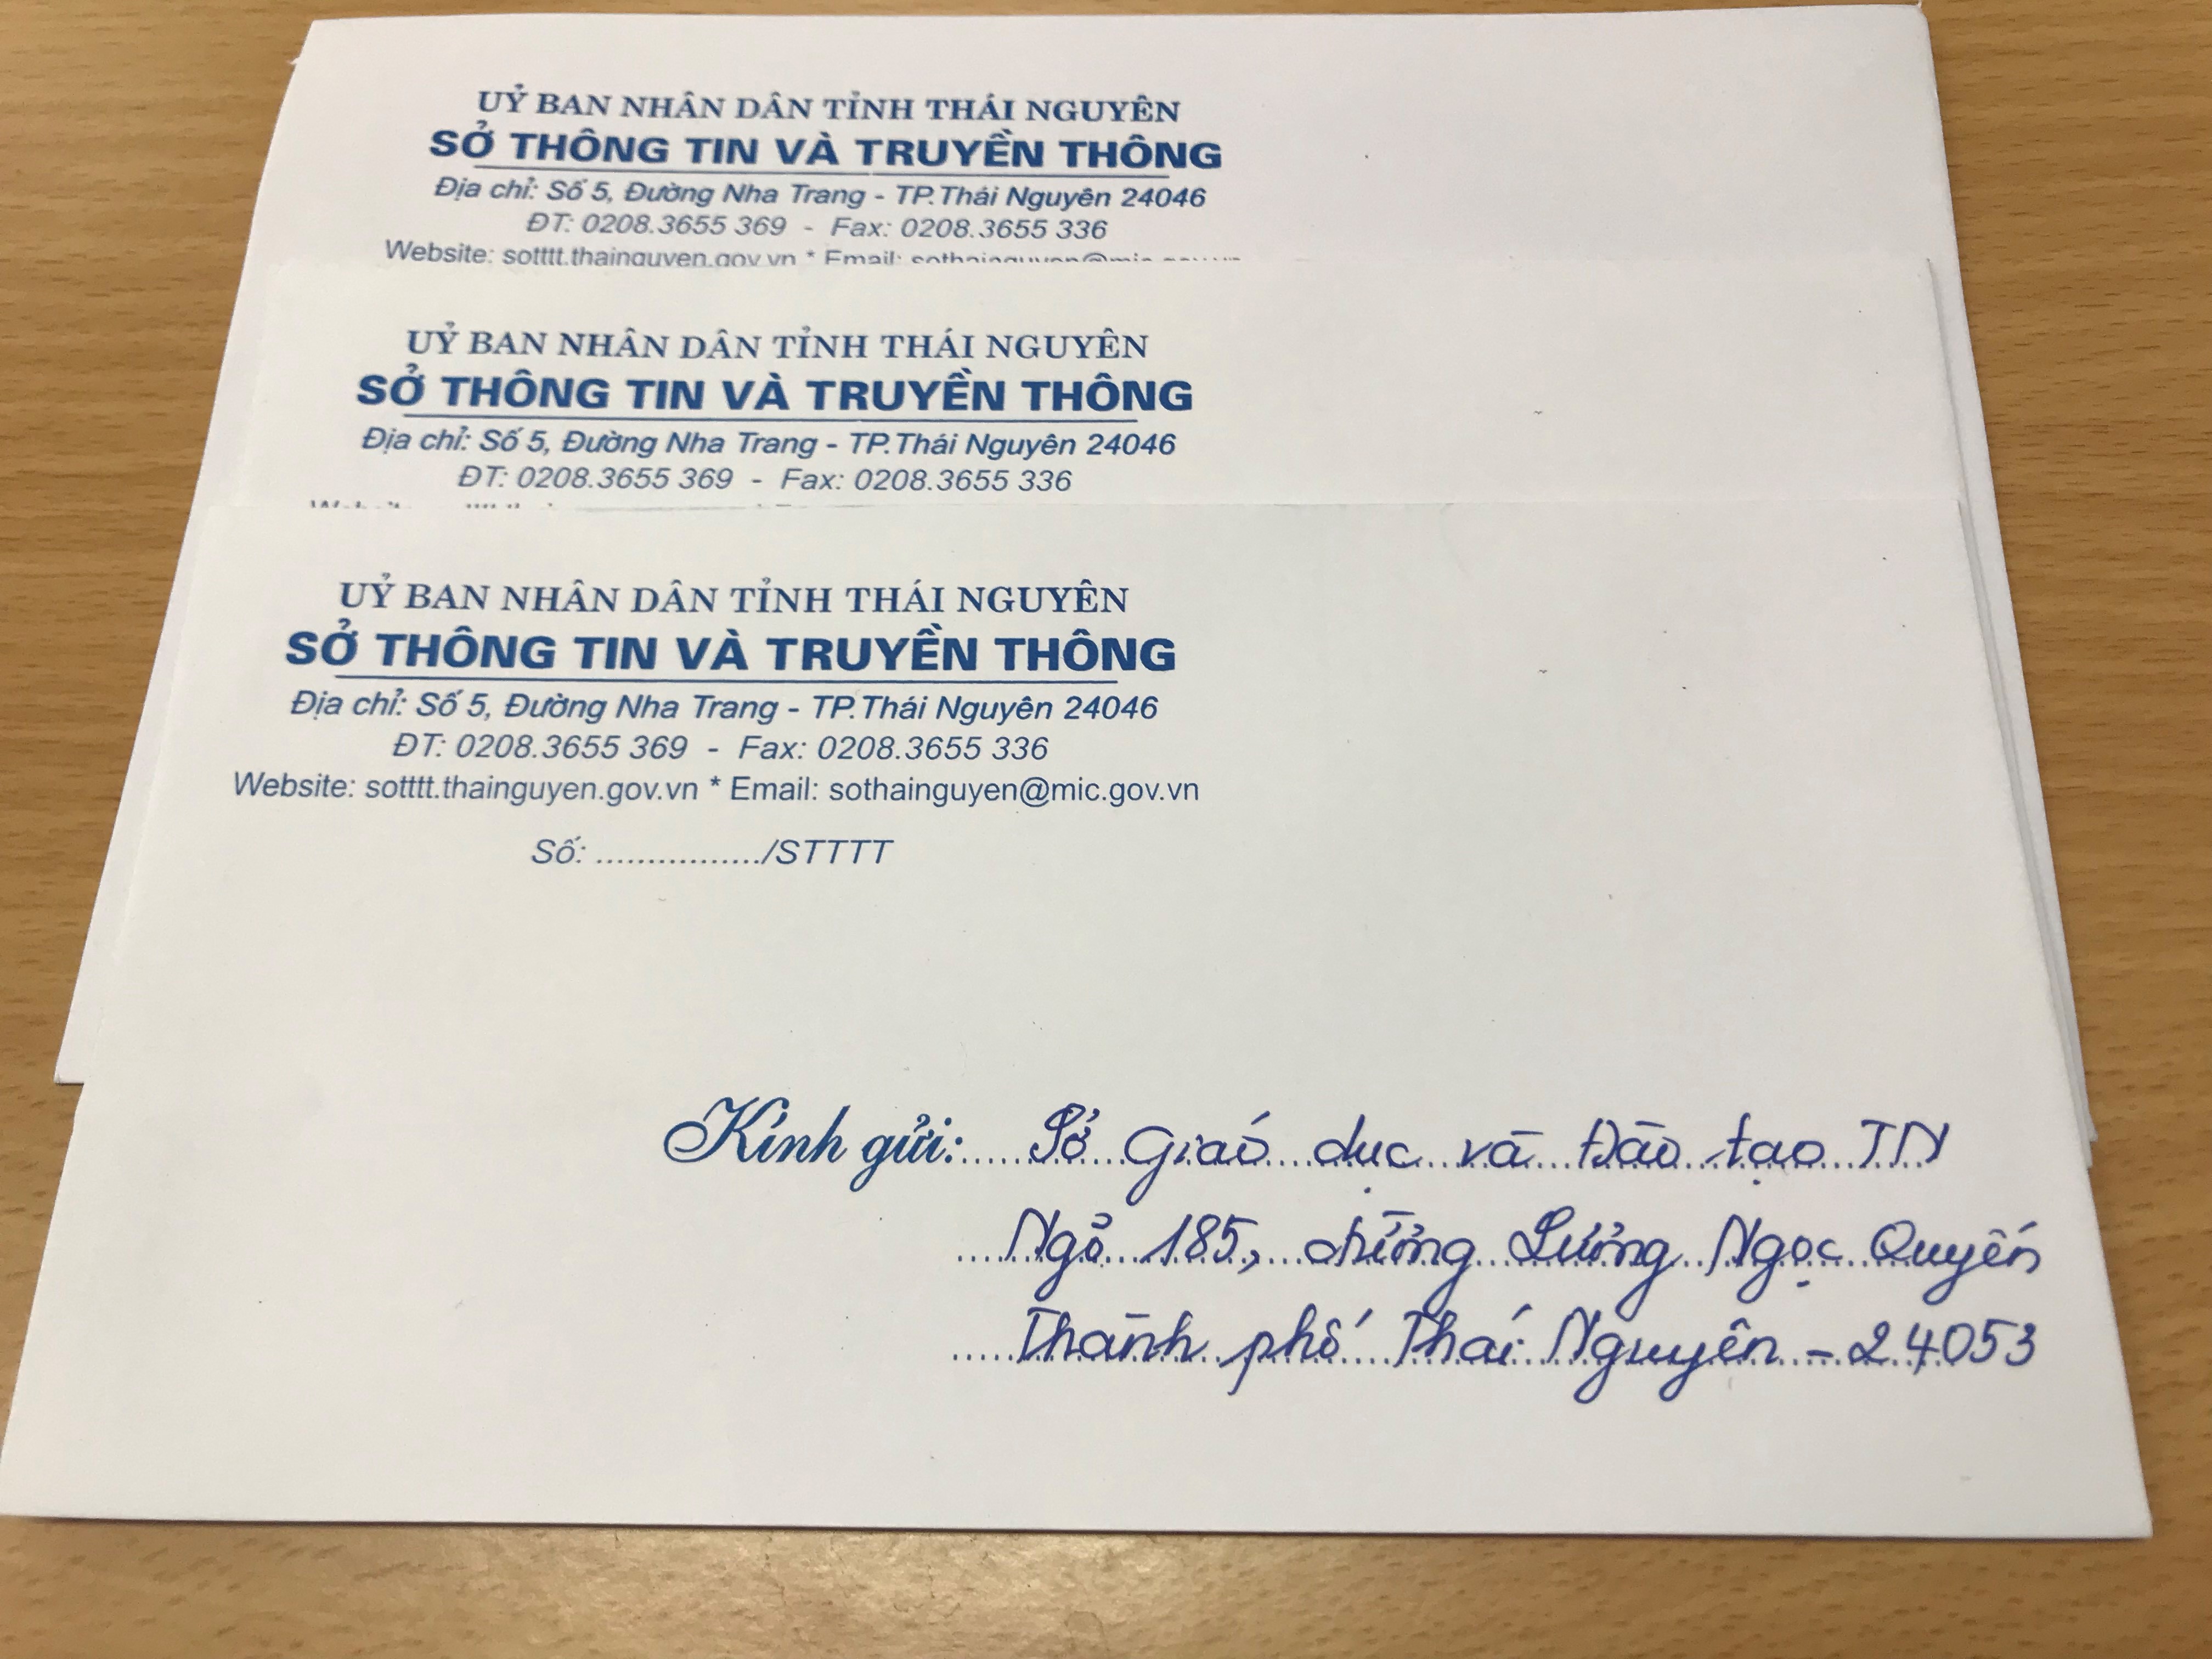 UỶ BAN NHÂN DÂN TỈNH THÁI NGUYÊN
SỞ THÔNG TIN VÀ TRUYỀN THÔNG
Địa chỉ: Số 5, Đường Nha Trang - TP.Thái Nguyên 24046
ĐT: 0208.3655 369 - Fax: 0208.3655 336
Website: sotttt.thainguyen.gov.vn * Email: sothainguyen@mic.gov.vn
UỶ BAN NHÂN DÂN TỈNH THÁI NGUYÊN
SỞ THÔNG TIN VÀ TRUYỀN THÔNG
Địa chỉ: Số 5, Đường Nha Trang - TP.Thái Nguyên 24046
ĐT: 0208.3655 369 - Fax: 0208.3655 336
UỶ BAN NHÂN DÂN TỈNH THÁI NGUYÊN
SỞ THÔNG TIN VÀ TRUYỀN THÔNG
Địa chỉ: Số 5, Đường Nha Trang - TP.Thái Nguyên 24046
ĐT: 0208.3655 369 - Fax: 0208.3655 336
Website: sotttt.thainguyen.gov.vn * Email: sothainguyen@mic.gov.vn
Số: ................/STTTT
Kính gửi: Sở Giáo dục và Đào tạo TN
Ngõ 185, đường Lương Ngọc Quyến
Thành phố Thái Nguyên - 24053